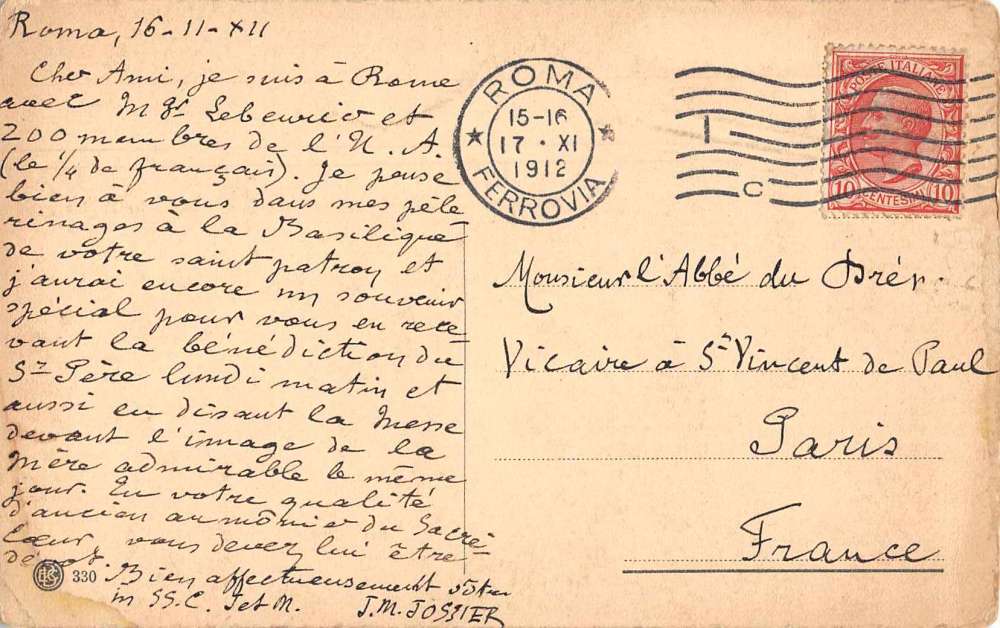 Roma, 16-11-XII
Cher Ami, je suis à Rome
avec Mgr et
200 membres de l'U. A.
(le 1/4 de français). Je pense
bien à vous dans mes péle
rinages à la Basilique
de votre saint patron et
j'aurai encore un souvenir
spécial pour vous en rece
vant la bénédiction du
St Père lundi matin et
aussi en disant la Messe
devant l'image de la
Mère admirable le même
jour. En votre qualité
d'ancien aumônier du Sacré-
Coeur vous devez lui être
dévot.
Bien affectueusement vôtre
in SS.C. J et M. J.M. TOSSIER
330
ROMA
15-16
17 · XI
1912
FERROVIA
1
C
POSTE ITALIANE
10 CENTESIMI 10
Monsieur l'Abbé du
Vicaire à St Vincent de Paul
Paris
France